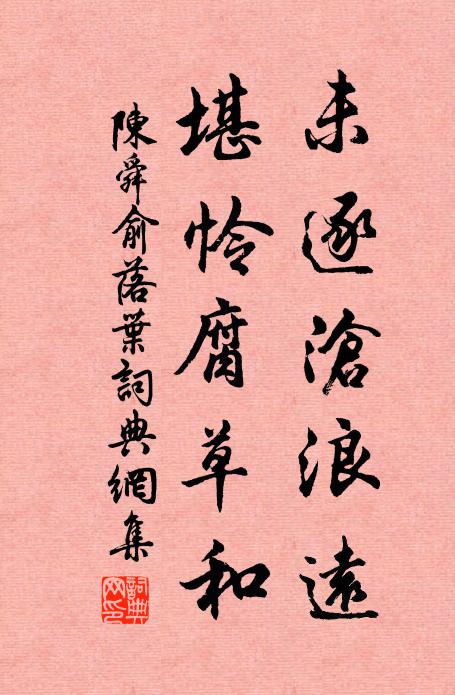 未逐滄浪遠
堪怜腐草和
陳舜俞落葉詞典網集
詞典网印